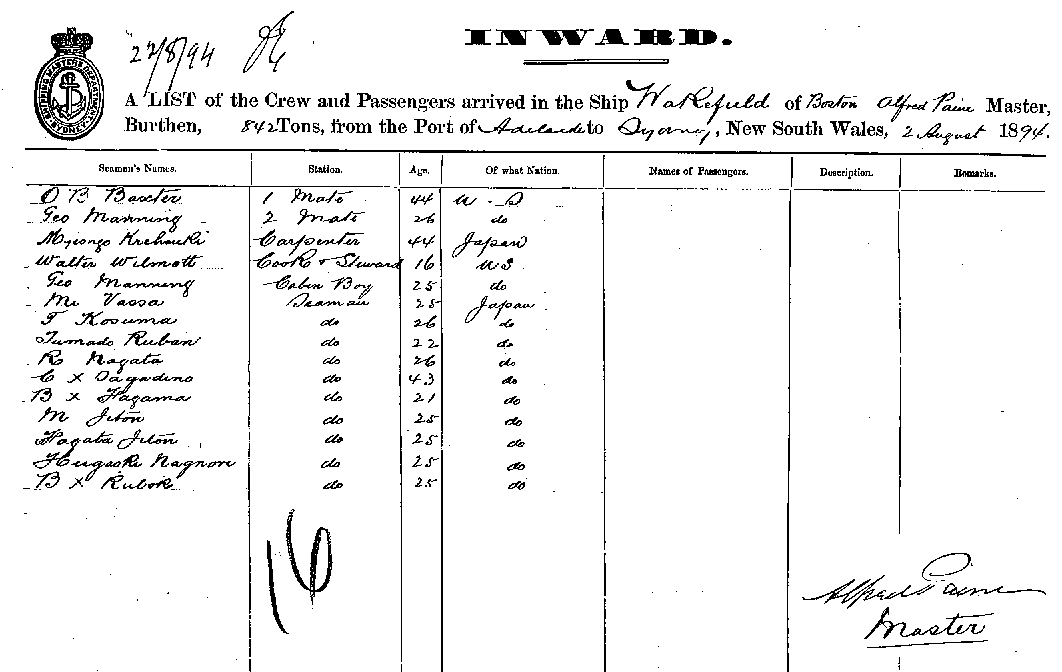 INWARD.
22/8/94
SHIPPING MASTERS DEPARTMENT SYDNEY
A LIST of the Crew and Passengers arrived in the Ship Wakefield of Boston Alfred Paine Master,
Burthen, 842 Tons, from the Port of Adelaide to Sydney, New South Wales, 2 August 1894.
Seamen's Names. Station. Age. Of what Nation. Names of Passengers. Description. Remarks.
O B Baxter 1 Mate 44 U.S
Geo Manning 2 Mate 26 do
Krehauki Carpenter 44 Japan
Walter Wilmott Cook & Steward 16 U S
Geo Manning Cabin Boy 25 do
Vassa Seaman 25 Japan
T Kosuma do 26 do
Tumado Ruban do 22 do
R Nagata do 26 do
C X Dagadino do 43 do
B X Hagama do 21 do
M Jeton do 25 do
Hagata Jeton do 25 do
Hugaski Nagnori do 25 do
B X Rubok do 25 do
16
Alfred Paine
Master